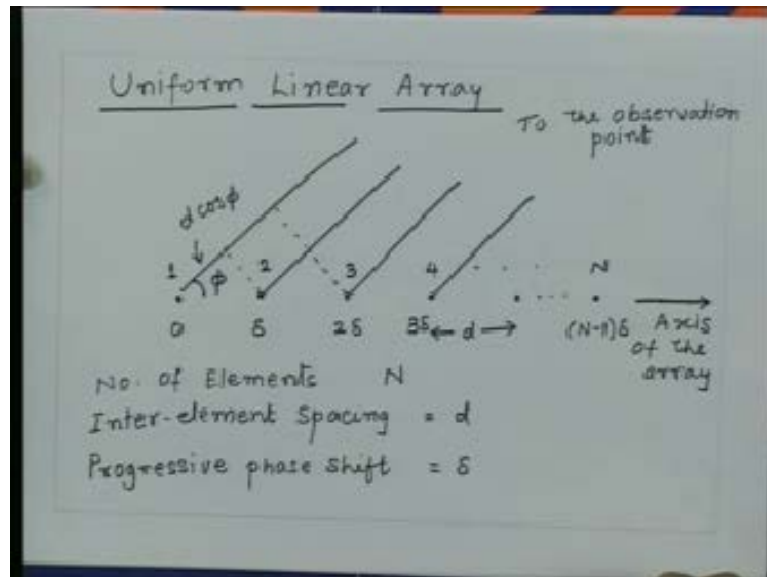 Uniform Linear Array
To the observation
point
d cos ϕ
1 ϕ 2 3 4 N
0 δ 2δ 3δ d (N-1)δ Axis
of the
array
No. of Elements N
Inter-element Spacing = d
Progressive phase shift = δ